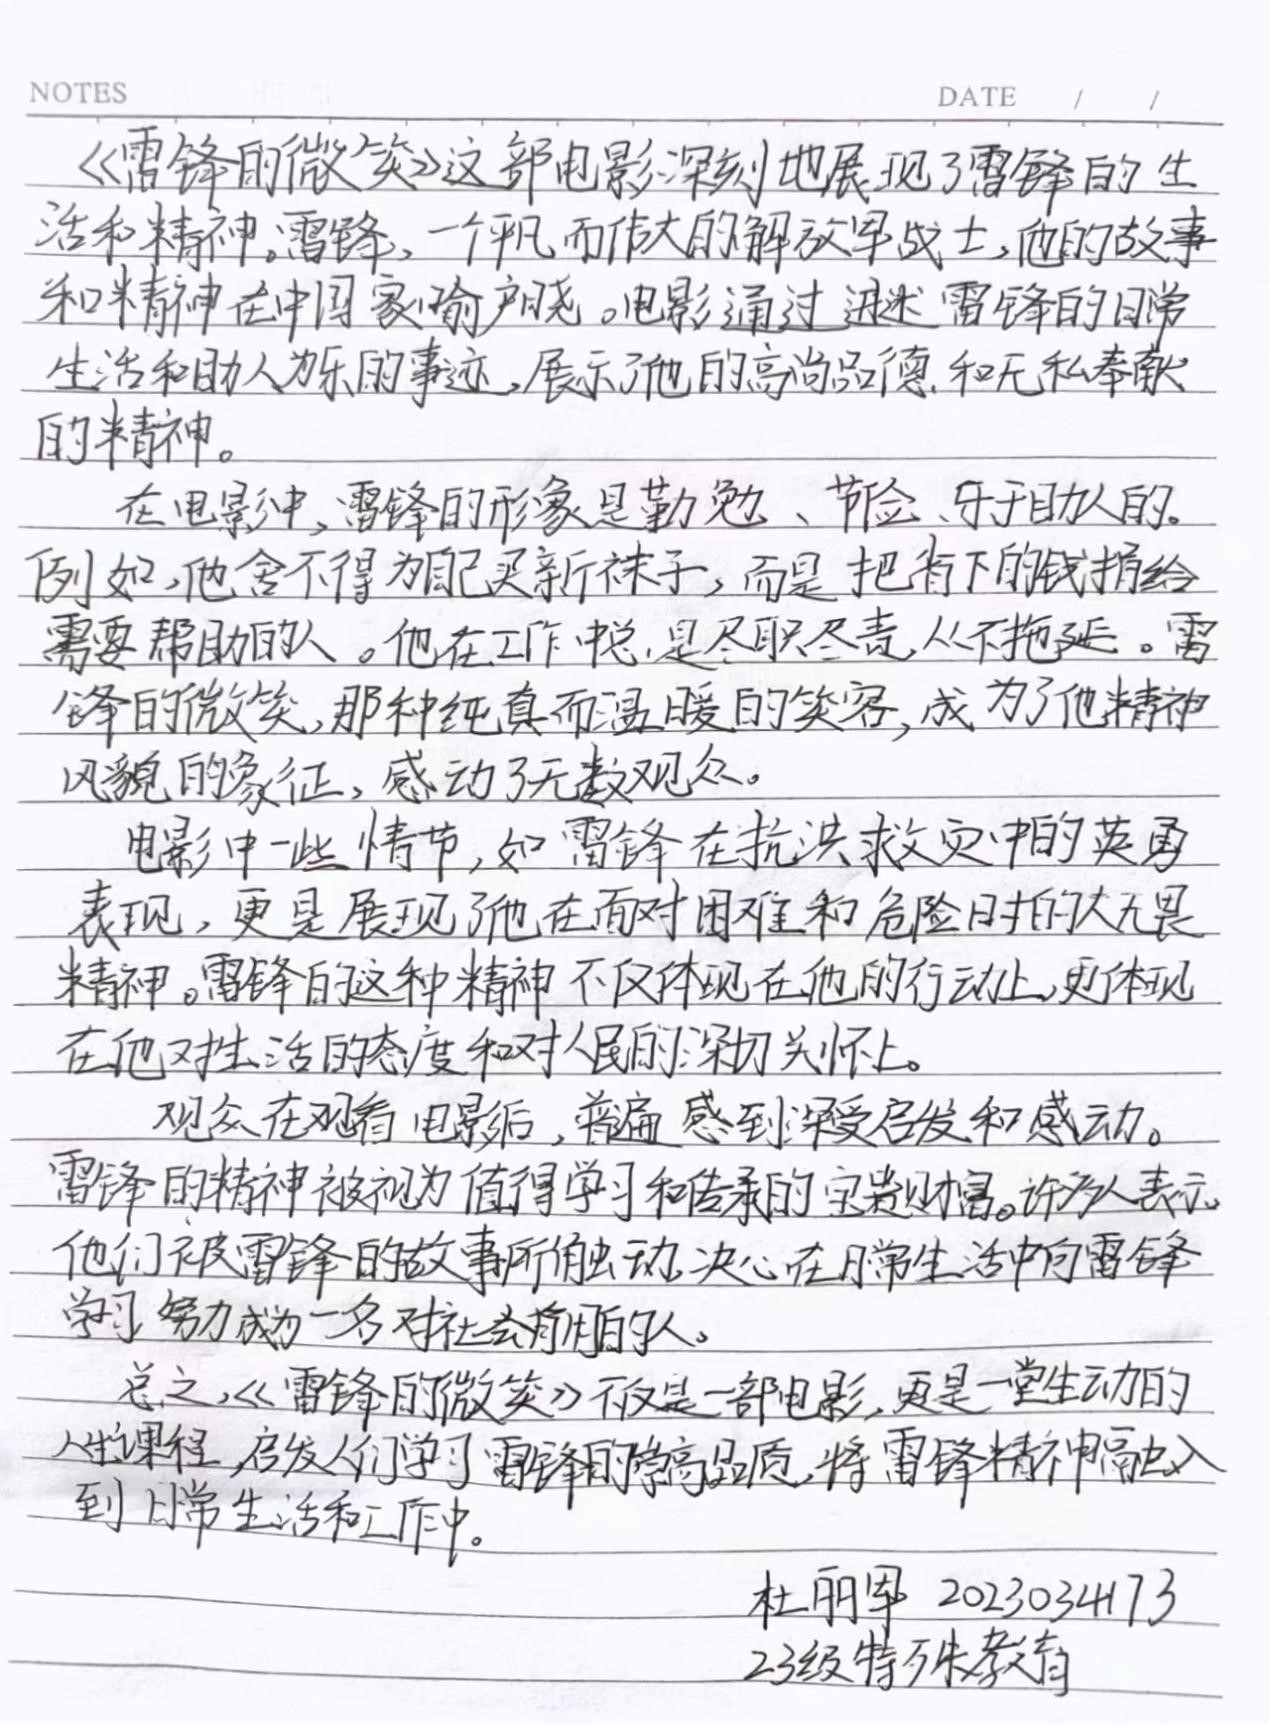 NOTES
DATE / /
《雷锋的微笑》这部电影深刻地展现了雷锋的生
活和精神。雷锋，一个平凡而伟大的解放军战士，他的故事
和精神在中国家喻户晓。电影通过讲述雷锋的日常
生活和助人为乐的事迹，展示了他的高尚品德和无私奉献
的精神。
在电影中，雷锋的形象是勤勉、节俭、乐于助人的。
例如，他舍不得为自己买新袜子，而是把省下的钱捐给
需要帮助的人。他在工作中总是尽职尽责，从不拖延。雷
锋的微笑，那种纯真而温暖的笑容，成为了他精神
风貌的象征，感动了无数观众。
电影中一些情节，如雷锋在抗洪救灾中的英勇
表现，更是展现了他在面对困难和危险时的大无畏
精神。雷锋的这种精神不仅体现在他的行动上，更体现
在他对生活的态度和对人民的深切关怀上。
观众在观看电影后，普遍感到深受启发和感动。
雷锋的精神被视为值得学习和传承的宝贵财富。许多人表示，
他们被雷锋的故事所触动，决心在日常生活中向雷锋
学习，努力成为一名对社会有用的人。
总之，《雷锋的微笑》不仅是一部电影，更是一堂生动的
人生课程，启发人们学习雷锋的崇高品质，将雷锋精神融入
到日常生活和工作中。
杜丽军 2023034173
23级特殊教育